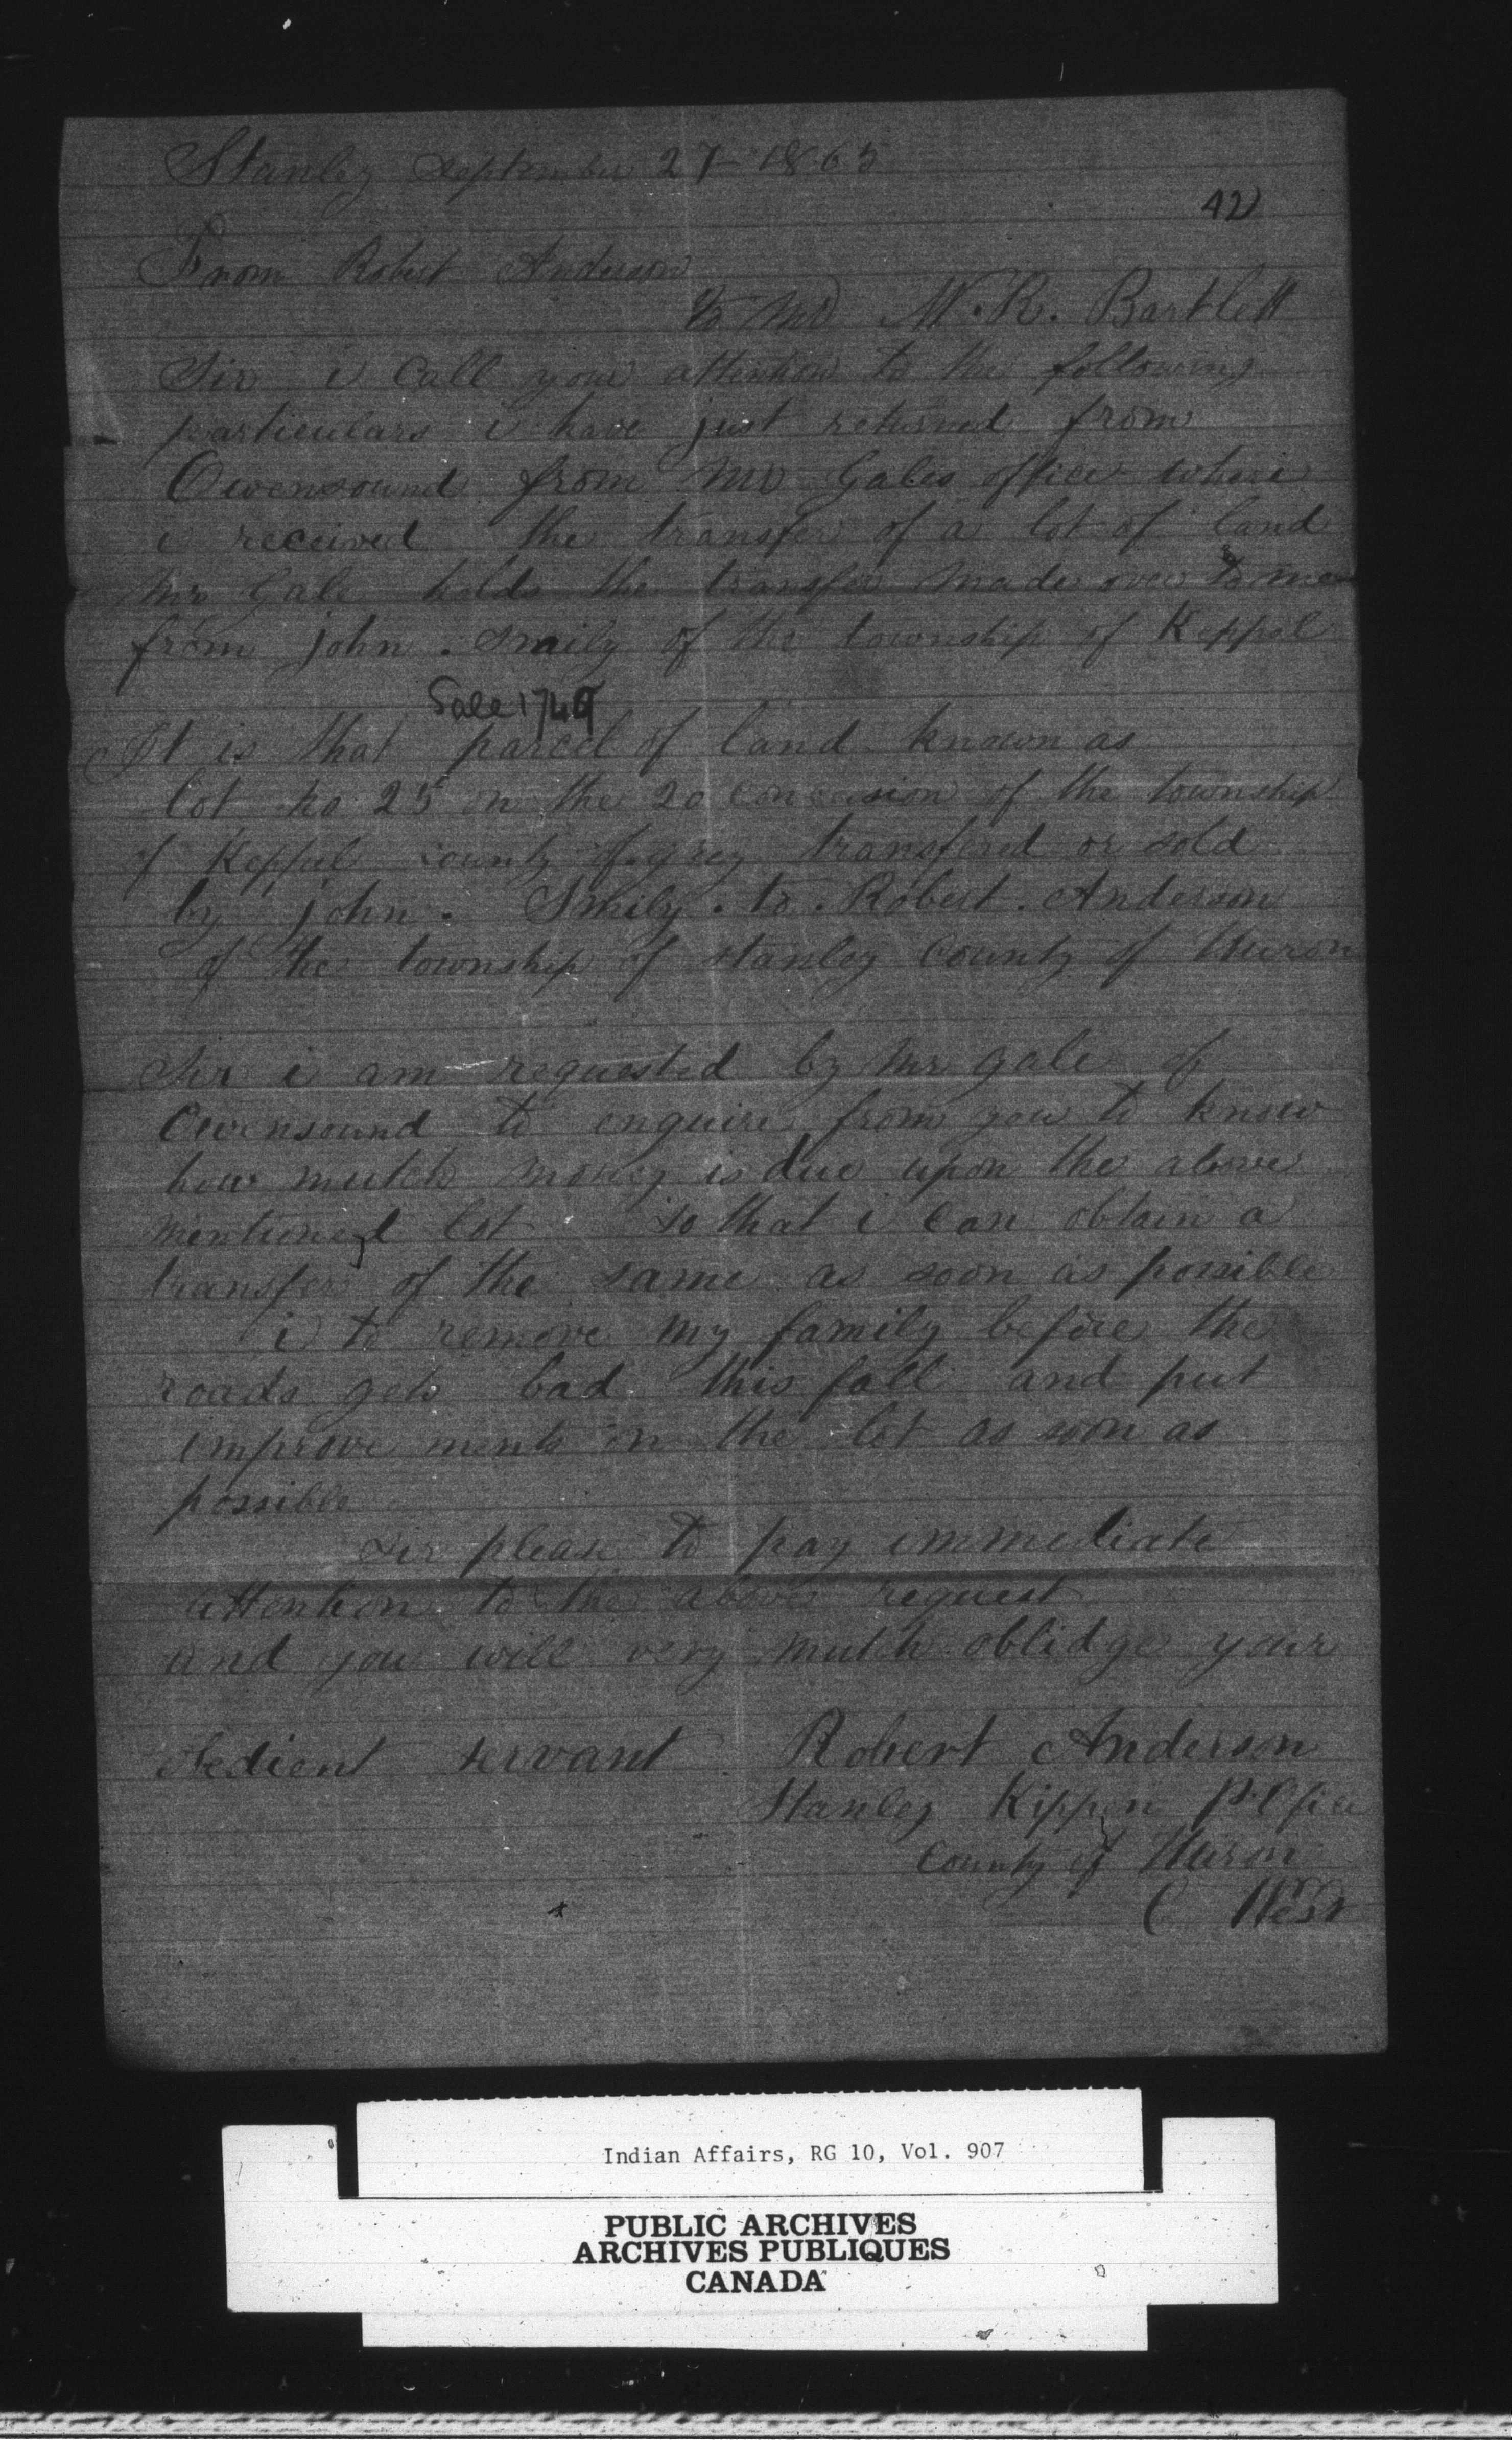 Stanley September 27 1865
42
From Robert Anderson
to Mr W. R. Bartlett
Sir i Call your attention to the following
particulars i have just returned from
Owensound from Mr Gales office where
i received the transfer of a lot of land
Mr Gale holds the transfer made over to me
from john . Smily of the township of Keppel
Sale 1749
It is that parcel of land known as
lot no 25 on the 20 concession of the township
of Keppel county of grey transfered or sold
by john . Smily . to . Robert . Anderson
of the township of stanley County of Huron
Sir i am requested by Mr gale of
Owensound to enquire from you to know
how mutch money is due upon the above
mentioned lot so that i can obtain a
transfer of the same as soon as possible
i to remove my family before the
roads gets bad this fall and put
improve ments on the lot as soon as
possible
Sir please to pay immediate
attention to the above request
and you will very mutch oblidge your
obedient servant Robert Anderson
Stanley Kippen P. Ofice
County of Huron
C West
Indian Affairs, RG 10, Vol. 907
PUBLIC ARCHIVES
ARCHIVES PUBLIQUES
CANADA